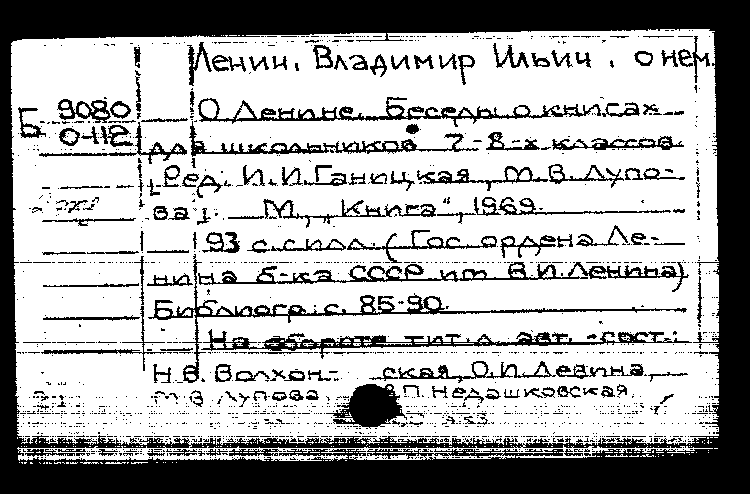 Ленин, Владимир Ильич, о нем.
Б 9080
0-112
О Ленине. Беседы о книгах
для школьников 7-8-х классов.
[Ред. И.И. Ганицкая, М.В. Лупо-
ва]. М., „Книга", 1969.
93 с. с илл. (Гос. ордена Ле-
нина б-ка СССР им. В.И. Ленина)
Библиогр.: с. 85-90.
На обороте тит. л. авт.-сост.:
Н.В. Волхон- ская, О.И. Левина,
М.В. Лупова, В.П. Недашковская.